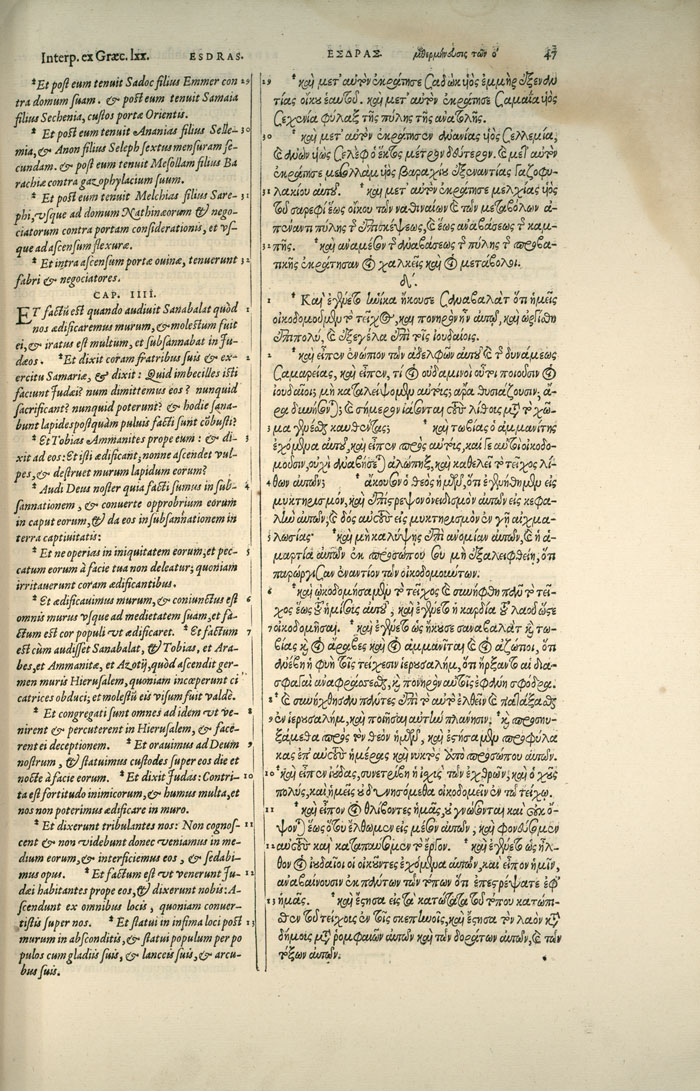 Interp. ex Græc. lxx. ESDRAS. ΕΣΔΡΑΣ 47
*Et post eum tenuit Sadoc filius Emmer con
tra domum suam. & post eum tenuit Samaia
filius Sechenia, custos portæ Orientis.
* Et post eum tenuit Ananias filius Selle-
mia, & Anon filius Seleph sextus mensuram se-
cundam. & post eum tenuit Mesollam filius Ba
rachiæ contra gazophylacium suum.
* Et post eum tenuit Melchias filius Sare-
phi, vsque ad domum Nathinæorum & nego-
ciatorum contra portam considerationis, et vs-
que ad ascensum flexuræ.
* Et intra ascensum portæ ouinæ, tenuerunt
fabri & negociatores.
CAP. IIII.
ET factũ est quando audiuit Sanabalat quòd
nos ædificaremus murum, & molestum fuit
ei, & iratus est multum, et subsannabat in Iu-
dæos. * Et dixit coram fratribus suis & ex-
ercitu Samariæ, & dixit: Quid imbecilles isti
faciunt Iudæi? num dimittemus eos? nunquid
sacrificant? nunquid poterunt? & hodie sana-
bunt lapides postquàm puluis facti sunt cõbusti?
* Et Tobias Ammanites prope eum: & di-
xit ad eos: Et isti ædificant; nonne ascendet vul-
pes, & destruet murum lapidum eorum?
* Audi Deus noster quia facti sumus in sub-
sannationem, & conuerte opprobrium eorum
in caput eorum, & da eos in subsannationem in
terra captiuitatis:
* Et ne operias in iniquitatem eorum; et pec-
catum eorum à facie tua non deleatur; quoniam
irritauerunt coram ædificantibus.
* Et ædificauimus murum, & coniunctus est
omnis murus vsque ad medietatem suam, et fa-
ctum est cor populi vt ædificaret. * Et factum
est cùm audisset Sanabalat, & Tobias, et Ara-
bes, et Ammanitæ, et Azotij, quòd ascendit ger-
men muris Hierusalem, quoniam incœperunt ci
catrices obduci; et molestũ eis visum fuit valdè.
* Et congregati sunt omnes ad idem vt ve-
nirent & percuterent in Hierusalem, & face-
rent ei deceptionem. * Et orauimus ad Deum
nostrum, & statuimus custodes super eos die et
nocte à facie eorum. * Et dixit Iudas: Contri-
ta est fortitudo inimicorum, & humus multa, et
nos non poterimus ædificare in muro.
* Et dixerunt tribulantes nos: Non cognos-
cent & non videbunt donec veniamus in me-
dium eorum, & interficiemus eos, & sedabi-
mus opus. * Et factum est vt venerunt Iu-
dæi habitantes prope eos, & dixerunt nobis: A-
scendunt ex omnibus locis, quoniam conuer-
tistis super nos. * Et statui in infima loci post
murum in absconditis, & statui populum per po
pulos cum gladiis suis, & lanceis suis, & arcu-
bus suis.
29 καὶ μετ' αὐτὸν ἐκράτησε Σαδὼκ υἱὸς ἐμμὴρ ἐξεναν
τίας οἴκου ἑαυτοῦ. καὶ μετ' αὐτὸν ἐκράτησε Σαμαΐα υἱὸς
Σεχενία φύλαξ τῆς πύλης τῆς ἀνατολῆς.
30 καὶ μετ' αὐτὸν ἐκράτησεν ἀνανίας υἱὸς Σελλεμία,
καὶ ἀνὼν υἱὸς Σελὲφ ὁ ἕκτος μέτρον δεύτερον. καὶ μετ' αὐτὸν
ἐκράτησε μεσολλὰμ υἱὸς βαραχίου ἐξεναντίας γαζοφυ-
31 λακίου αὐτοῦ. καὶ μετ' αὐτὸν ἐκράτησε μελχίας υἱὸς
τοῦ σαρεφί ἕως οἴκου τῶν ναθιναίων καὶ τῶν μεταβόλων ἀ-
πέναντι πύλης τῆς ἐπισκέψεως, καὶ ἕως ἀναβάσεως τῆς καμ-
32 πῆς. καὶ ἀναμέσον τῆς ἀναβάσεως τῆς πύλης τῆς προβα-
τικῆς ἐκράτησαν οἱ χαλκεῖς καὶ οἱ μετάβολοι.
δ'.
1 Καὶ ἐγένετο ἡνίκα ἤκουσε Σαναβαλὰτ ὅτι ἡμεῖς
οἰκοδομοῦμεν τὸ τεῖχος, καὶ πονηρὸν ἦν αὐτῷ, καὶ ὠργίσθη
ἐπὶ πολὺ, καὶ ἐξεγέλα ἐπὶ τοῖς ἰουδαίοις.
2 καὶ εἶπεν ἐνώπιον τῶν ἀδελφῶν αὐτοῦ καὶ τῆς δυνάμεως
Σαμαρείας, καὶ εἶπεν, τί οἱ οὐδαμινοὶ οὗτοι ποιοῦσιν οἱ
ἰουδαῖοι; μὴ καταλείψομεν αὐτούς; ἆρα θυσιάζουσιν; ἆ-
ρα δυνήσονται; καὶ σήμερον ἰάσονται τοὺς λίθους μετὰ τὸ χῶ-
3 μα γῆς καυθέντας; καὶ τωβίας ὁ ἀμμανίτης
ἐχόμενα αὐτοῦ, καὶ εἶπεν πρὸς αὐτοὺς, καί γε αὐτοὶ οἰκοδο-
μοῦσιν, οὐχὶ ἀναβήσεται ἀλώπηξ, καὶ καθελεῖ τὸ τεῖχος λί-
4 θων αὐτῶν; ἄκουσον ὁ θεὸς ἡμῶν, ὅτι ἐγενήθημεν εἰς
μυκτηρισμὸν, καὶ ἐπίστρεψον ὀνειδισμὸν αὐτῶν εἰς κεφα-
λὴν αὐτῶν, καὶ δὸς αὐτοὺς εἰς μυκτηρισμὸν ἐν γῇ αἰχμα-
5 λωσίας. καὶ μὴ καλύψῃς ἐπὶ ἀνομίαν αὐτῶν, καὶ ἡ ἁ-
μαρτία αὐτῶν ἐκ προσώπου σου μὴ ἐξαλειφθείη, ὅτι
παρώργισαν ἐναντίον τῶν οἰκοδομούντων.
6 καὶ ᾠκοδομήσαμεν τὸ τεῖχος καὶ συνήφθη πᾶν τὸ τεῖ-
χος ἕως τοῦ ἡμίσους αὐτοῦ, καὶ ἐγένετο ἡ καρδία τοῦ λαοῦ ὥστε
7 οἰκοδομῆσαι. καὶ ἐγένετο ὡς ἤκουσε σαναβαλὰτ καὶ τω-
βίας καὶ οἱ ἄραβες καὶ οἱ ἀμμανῖται καὶ οἱ ἀζώτιοι, ὅτι
ἀνέβη ἡ φυὴ τοῖς τείχεσιν ἱερουσαλὴμ, ὅτι ἤρξαντο αἱ δια-
σφαγαὶ ἀναφράσσεσθαι, καὶ πονηρὸν αὐτοῖς ἐφάνη σφόδρα.
8 καὶ συνήχθησαν πάντες ἐπὶ τὸ αὐτὸ ἐλθεῖν καὶ πατάξαι
9 ἐν ἱερουσαλὴμ, καὶ ποιῆσαι αὐτὴν πλάνησιν. καὶ προσηυ-
ξάμεθα πρὸς τὸν θεὸν ἡμῶν, καὶ ἐστήσαμεν προφύλα
κας ἐπ' αὐτοὺς ἡμέρας καὶ νυκτὸς ἀπὸ προσώπου αὐτῶν.
10 καὶ εἶπεν ἰούδας, συνετρίβη ἡ ἰσχὺς τῶν ἐχθρῶν, καὶ ὁ χοῦς
πολὺς, καὶ ἡμεῖς οὐ δυνησόμεθα οἰκοδομεῖν ἐν τῷ τείχει.
11 καὶ εἶπον οἱ θλίβοντες ἡμᾶς, οὐ γνώσονται καὶ οὐκ ὄ-
ψονται ἕως ὅτου ἔλθωμεν εἰς μέσον αὐτῶν, καὶ φονεύσωμεν
12 αὐτοὺς καὶ καταπαύσωμεν τὸ ἔργον. καὶ ἐγένετο ὡς ἦλ-
θον οἱ ἰουδαῖοι οἱ οἰκοῦντες ἐχόμενα αὐτῶν, καὶ εἶπον ἡμῖν,
ἀναβαίνουσιν ἐκ πάντων τῶν τόπων ὅτι ἐπεστρέψατε ἐφ'
13 ἡμᾶς. καὶ ἔστησα εἰς τὰ κατώτατα τοῦ τόπου κατόπι-
σθεν τοῦ τείχους ἐν τοῖς σκεπεινοῖς, καὶ ἔστησα τὸν λαὸν κατὰ
δήμους μετὰ ῥομφαιῶν αὐτῶν καὶ τῶν δοράτων αὐτῶν, καὶ τῶν
τόξων αὐτῶν.